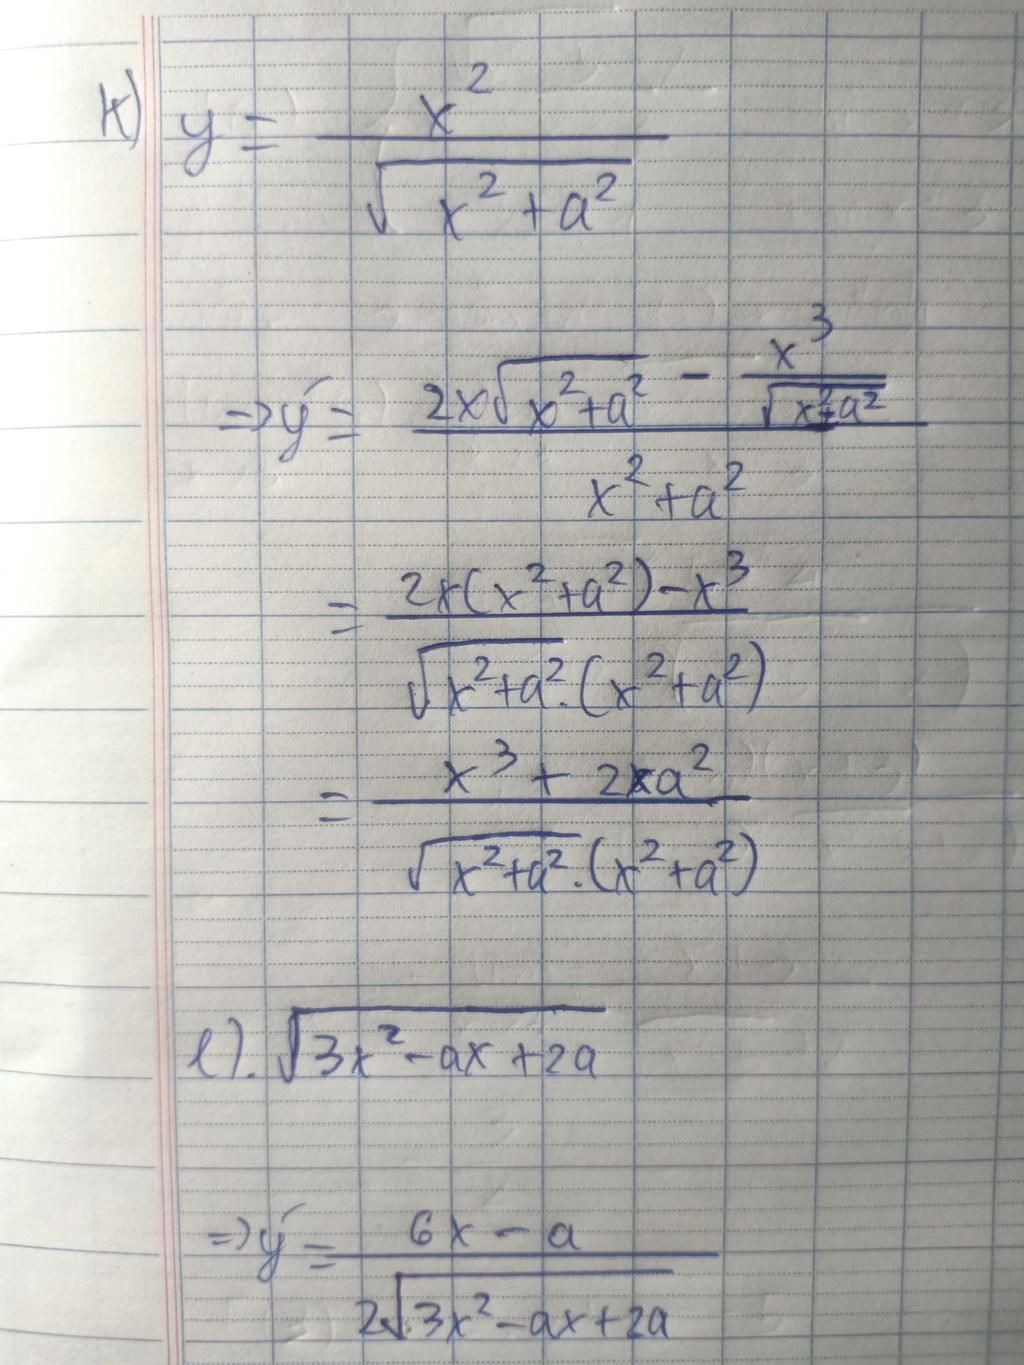 k) y = x² / √(x² + a²)
=> y' = (2x√(x²+a²) - x³/√(x²+a²)) / (x² + a²)
= (2x(x²+a²) - x³) / (√(x²+a²).(x²+a²))
= (x³ + 2xa²) / (√(x²+a²).(x²+a²))
l). √(3x² - ax + 2a)
=> y' = (6x - a) / (2√(3x² - ax + 2a))